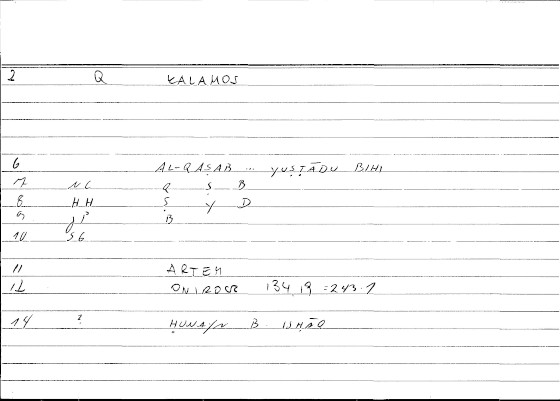 2 Q KALAMOS
6 AL-QAṢAB ... YUṢṬĀDU BIHI
7 NC Q Ṣ B
8 HH Ṣ Y D
9 B
10 SG
11 ARTEM
12 ONIROCR 134,19 = 243.7
14 ? ḤUNAYN B. ISḤĀQ